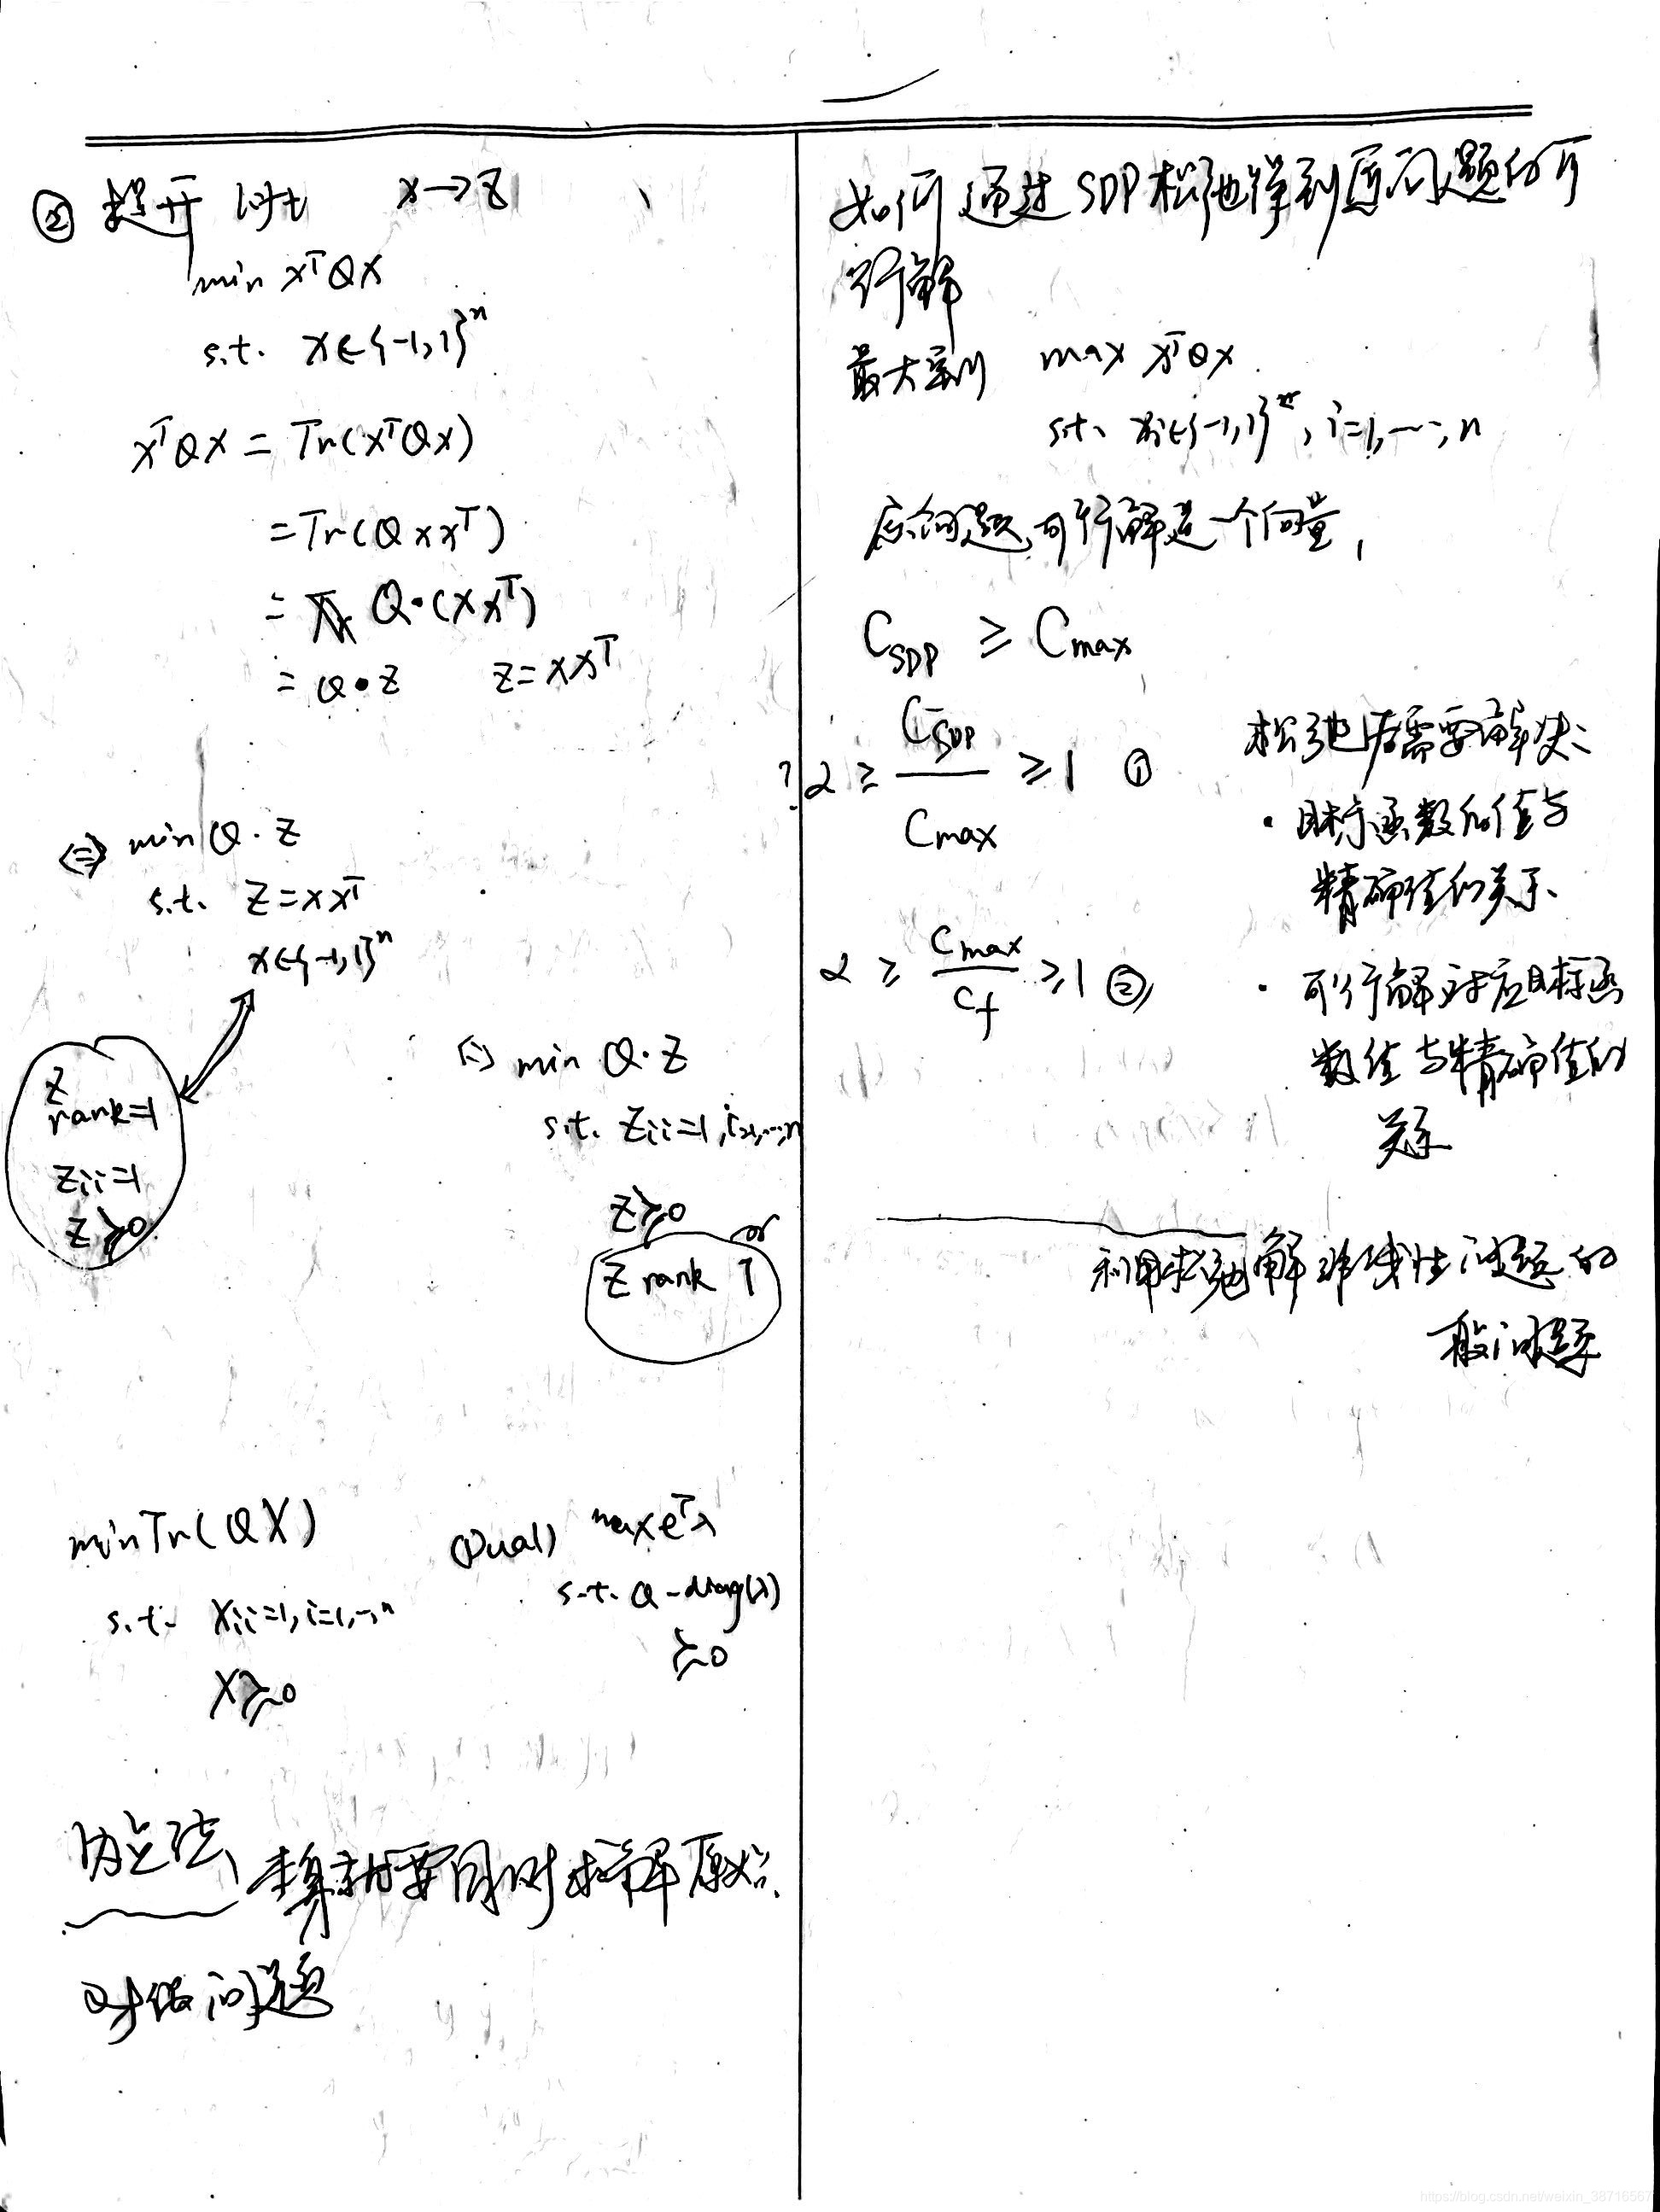 ② 提升 lift x→Z
min xᵀQx
s.t. x∈{-1,1}ⁿ
xᵀQx = Tr(xᵀQx)
= Tr(Qxxᵀ)
= Q·(xxᵀ)
= Q·Z Z=xxᵀ
⇔ min Q·Z
s.t. Z=xxᵀ
x∈{-1,1}ⁿ
Z
rank=1
Zii=1
Z≽0
⇔ min Q·Z
s.t. Zii=1, i=1,…,n
Z≽0
or
Z rank 1
min Tr(QX)
s.t. Xii=1, i=1,…,n
X≽0
(Dual) max eᵀλ
s.t. Q-diag(λ)
≽0
内点法、本身就要同时求解原始、
对偶问题
如何通过SDP松弛得到原问题的可
行解
最大割 max xᵀQx
s.t. xi∈{-1,1}, i=1,…,n
原问题可行解是一个向量,
C_SDP ≥ C_max
? α ≥ C_SDP / C_max ≥ 1 ①
α ≥ C_max / C_f ≥ 1 ②
松弛后需要解决:
· 目标函数的值与
精确值的关系、
· 可行解对应目标函
数值与精确值的
关系
利用松弛解非线性问题的
一般问题
https://blog.csdn.net/weixin_38716567